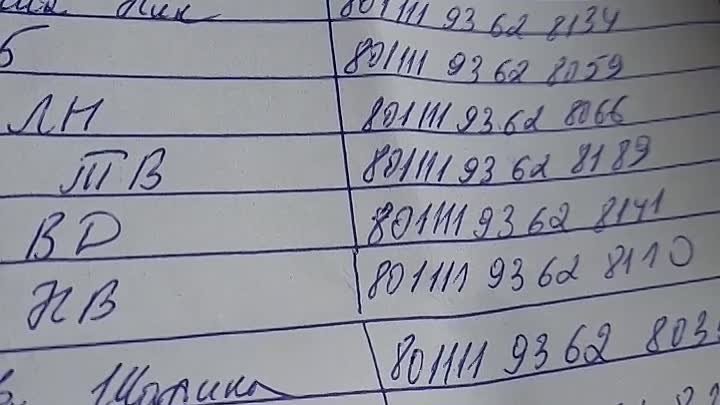 801111 93 62 8134
Б 801111 93 62 8059
ЛН 801111 93 62 8066
ТВ 801111 93 62 8189
ВД 801111 93 62 8141
НВ 801111 93 62 8110
801111 93 62 803